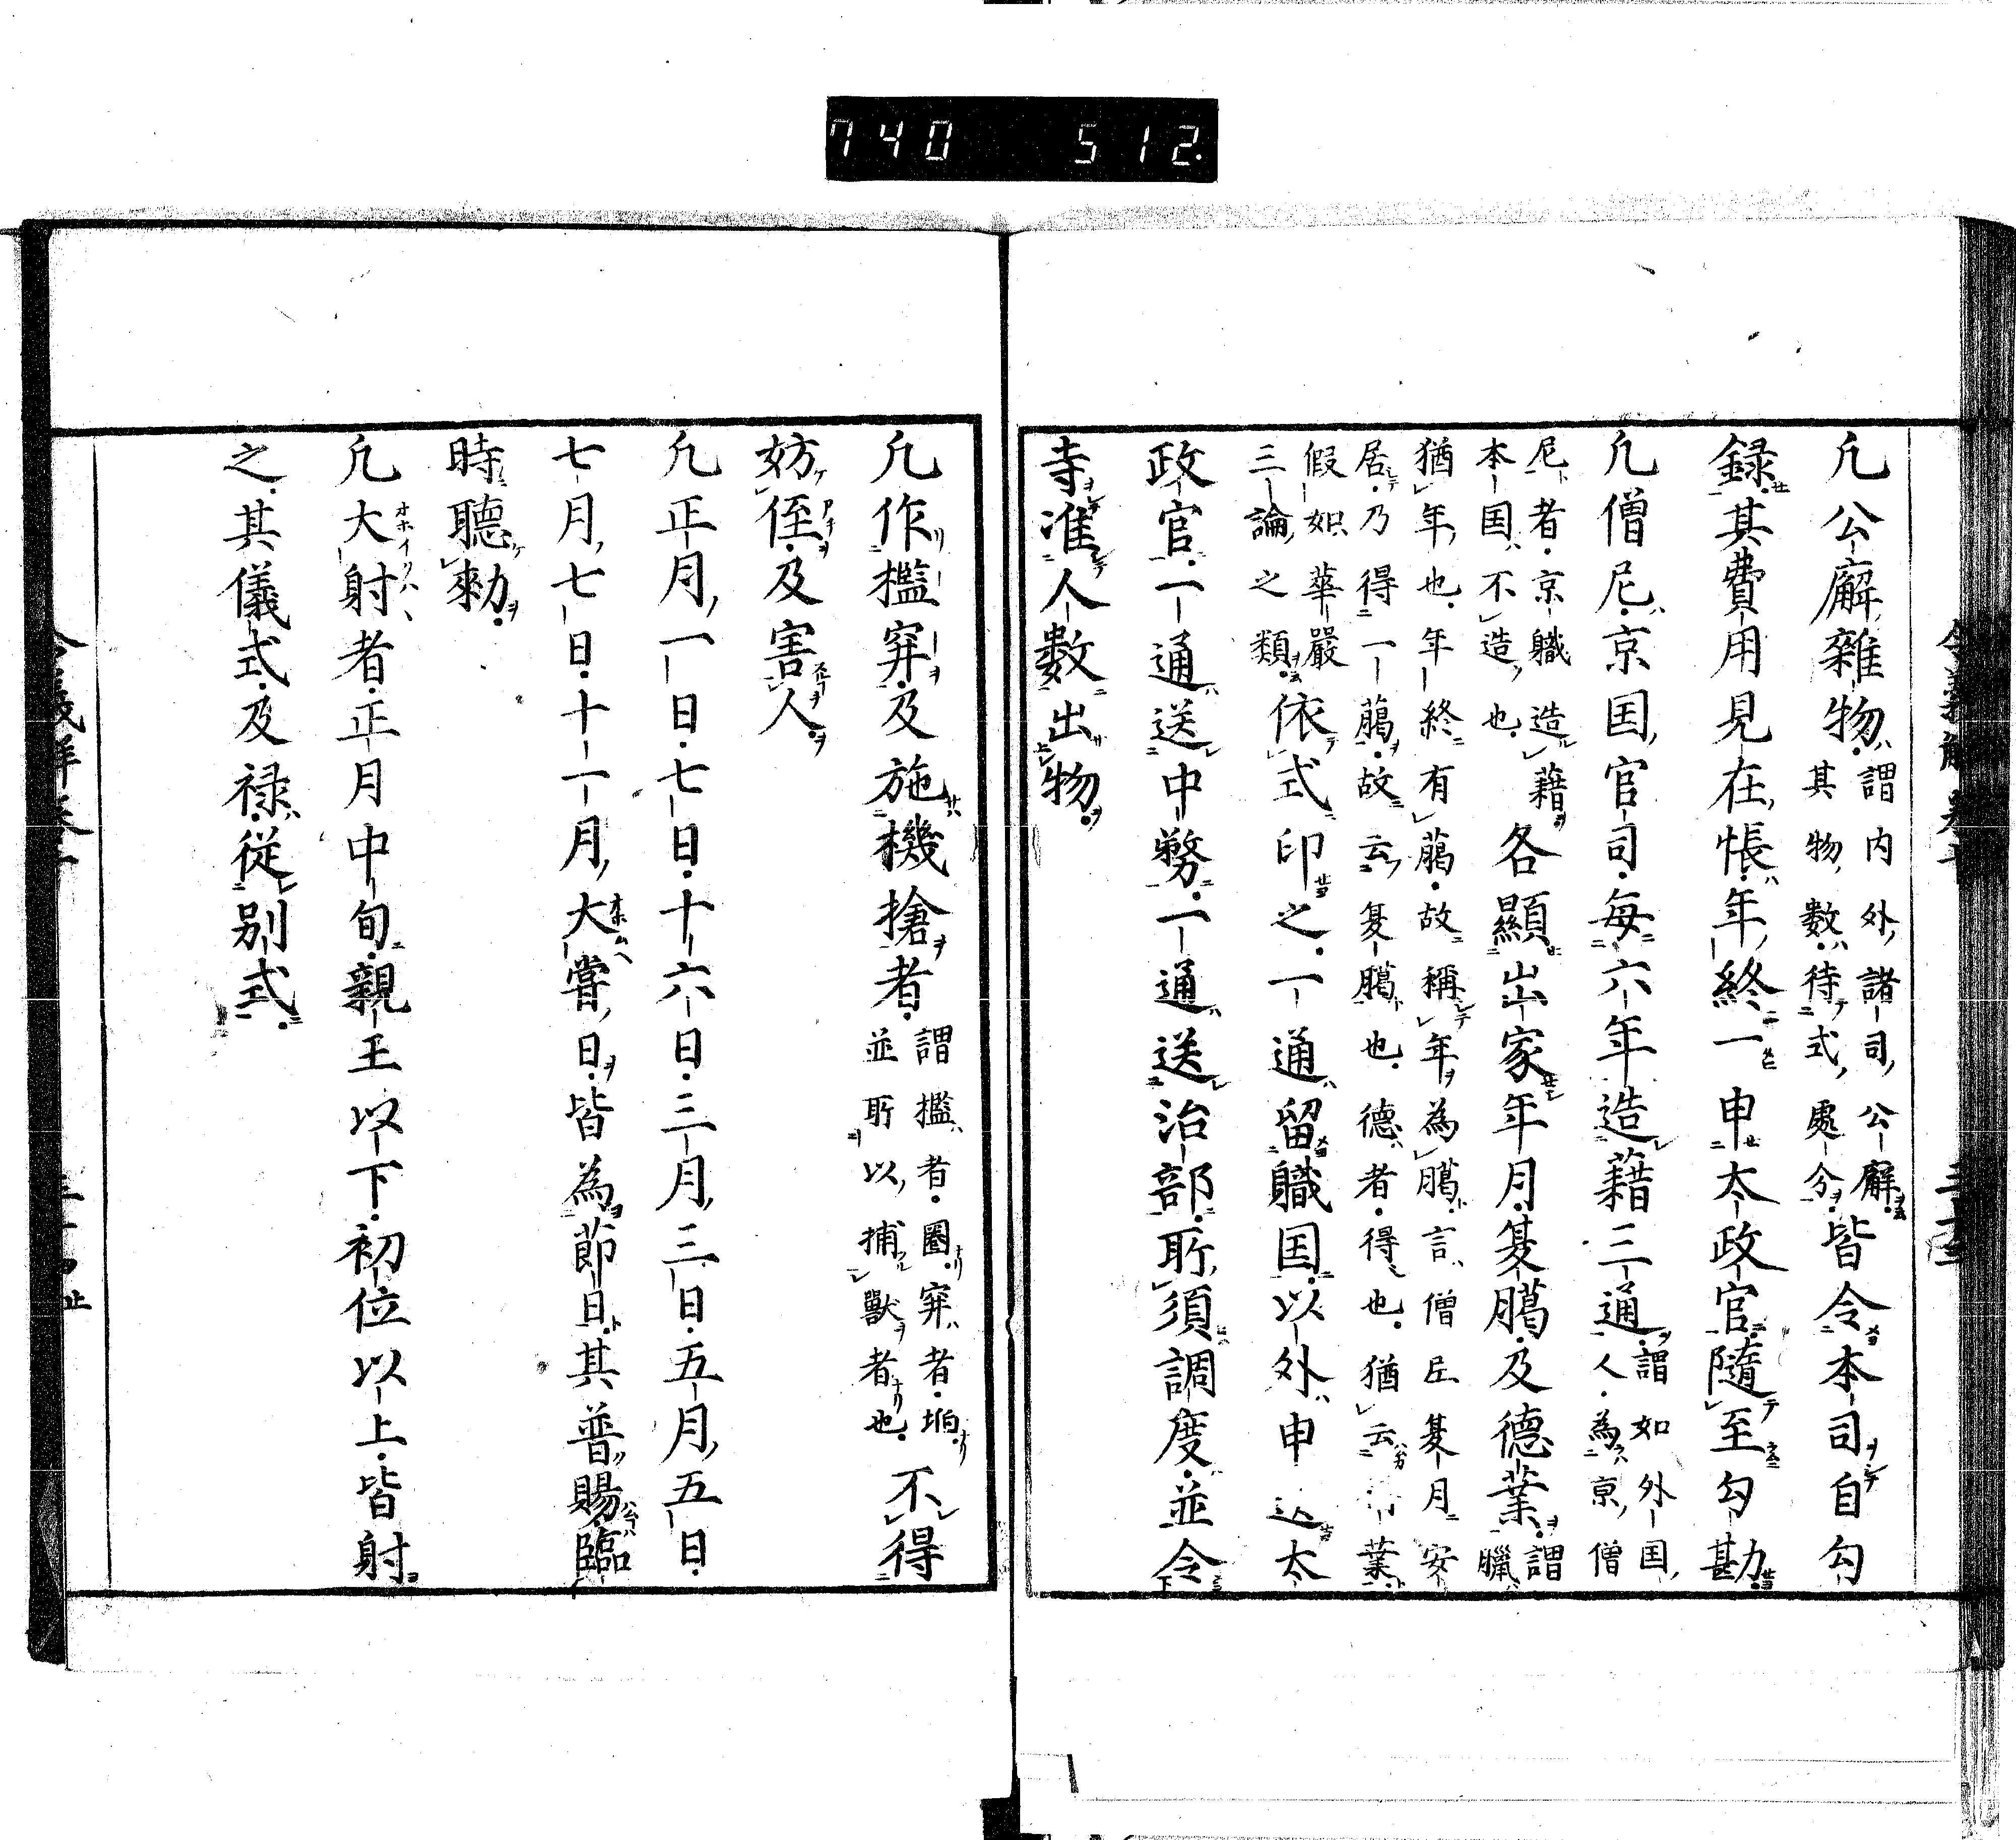 740 512
凢公廨雜物謂内外諸司公廨
其物數待式處分皆令本司自勾
録其費用見在帳年終一申太政官隨至勾勘
凢僧尼京国官司毎六年造藉三通謂如外国
人為京僧
尼者京軄造藉
本国不造也各顯出家年月夏臈及德業謂
臘
猶年也年終有臈故稱年為臈言僧居夏月安
居乃得一臈故云夏臈也德者得也猶云業
假如華嚴
三論之類依式印之一通留軄国以外申送太
政官一通送中務一通送治部所須調度並令
寺准人數出物
凢作檻穽及施機搶者謂檻者圈穽者
並所以捕獸者也不得
妨俓及害人
凢正月一日七日十六日三月三日五月五日
七月七日十一月大嘗日皆為節日其普賜臨
時聽勅
凢大射者正月中旬親王以下初位以上皆射
之其儀式及禄従别式